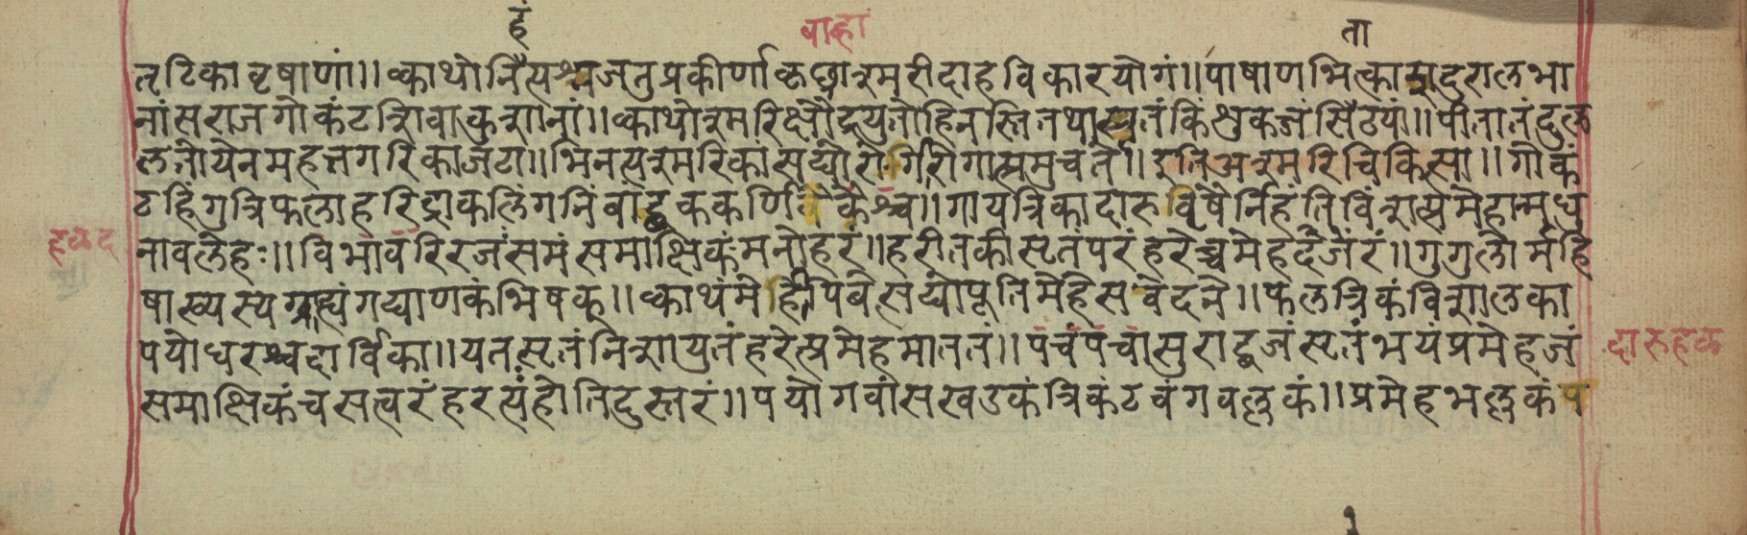 हं वाहा ता
तृटिकावृषाणां।। क्वाथोनिपैत्यश्मजतुप्रकीर्णाकृछ्राश्मरीदाहविकारयोगं।। पाषाणभित्कारादुरालभा
नांसराजगोकंटत्रिशिवाकुशानां।। क्वाथोश्मरिक्षौद्रयुतोहिनस्तितथास्मृतंकिंशुकजंसिठयां।। पीतातंदुल
लतोयेनमहत्तगरिकाजटा।। भिनत्यश्मरिकांसद्योरोगिरोगात्समुचते।। इतिअश्मरिचिकित्सा।। गोकं
टहिंगुत्रिफलाहरिद्राकलिंगनिंबांबुककर्णि कैश्च।। गायत्रिकादारुविषैर्निहंतिविंशत्प्रमेहान्मधु
हळद नावलेहः।। विभावरिरजंसमंसमाक्षिकंमनोहरं।। हरीतकीसृतंपरंहरेच्चमेहदर्जरं।। गुगुलोर्महि
षाख्यस्यग्राह्यंगद्याणकंभिषक्।। क्वाथंमेहीपिबेत्सद्योपूतिमेहेसवेदने।। फलत्रिकंविशालका
पयोधरश्चदार्विका।। यतसृतंनिशायुतंहरेत्प्रमेहमाततं।। पंचंपंचासुराद्रुजंसृतंभयंप्रमेहजं दारुहळ
समाक्षिकंचसत्वरंहरत्यंहोतिदुस्तरं।। पयोगवांसखउकंत्रिकंटवंगवल्लकं।। प्रमेहभल्लुकंप